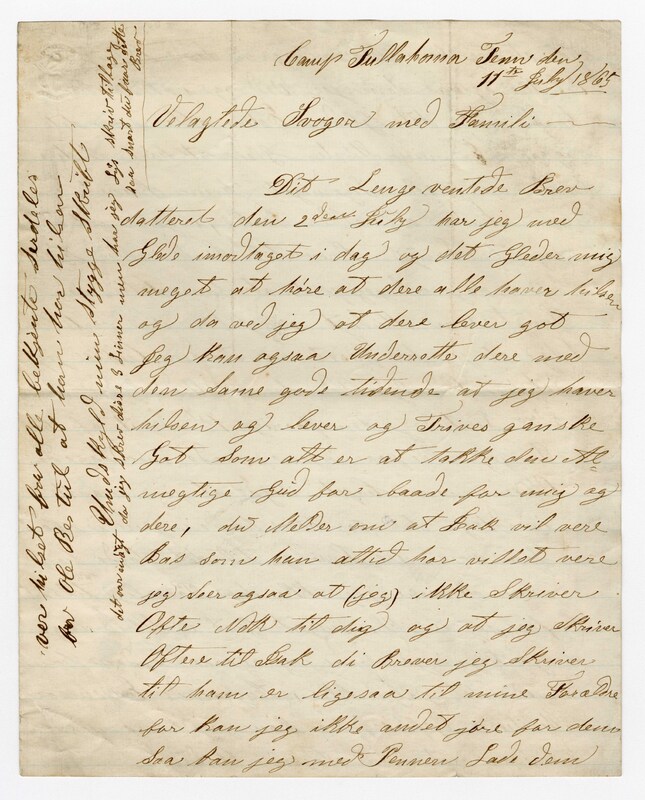 Camp Tullahoma Tenn den
11th July 1865
Velagtede Svoger med Famili
Dit Lenge ventede Brev
datteret den 2den July har jeg med
Glede imodtaget i dag og det Gleder mig
meget at høre at dere alle haver hilsen
og da ved jeg at dere lever got
Jeg kan ogsaa Underrette dere med
den same gode tidende at jeg haver
hilsen og lever og Trives ganske
Got som alt er at takke den Al
megtige Gud for baade for mig og
dere, du Melder om at Isak vil vere
Bas som han altid har villet vere
jeg seer ogsaa at (jeg) ikke Skriver
Ofte Nok til dig og at jeg Skriver
Oftere til Isak di Brever jeg Skriver
til ham er ligesaa til mine Forældre
for kan jeg ikke andet jøre for dem
saa kan jeg med Pennen Lade dem
ver hilset fra alle bekjente Serdeles
fra Ole Bestul at han har hilsen
Undskyld min Stygge Skrivt
det var mørgt da jeg skrev disse 3 Linner men har jeg Lys skriv tilbage
saa snart du faar dette
Brev